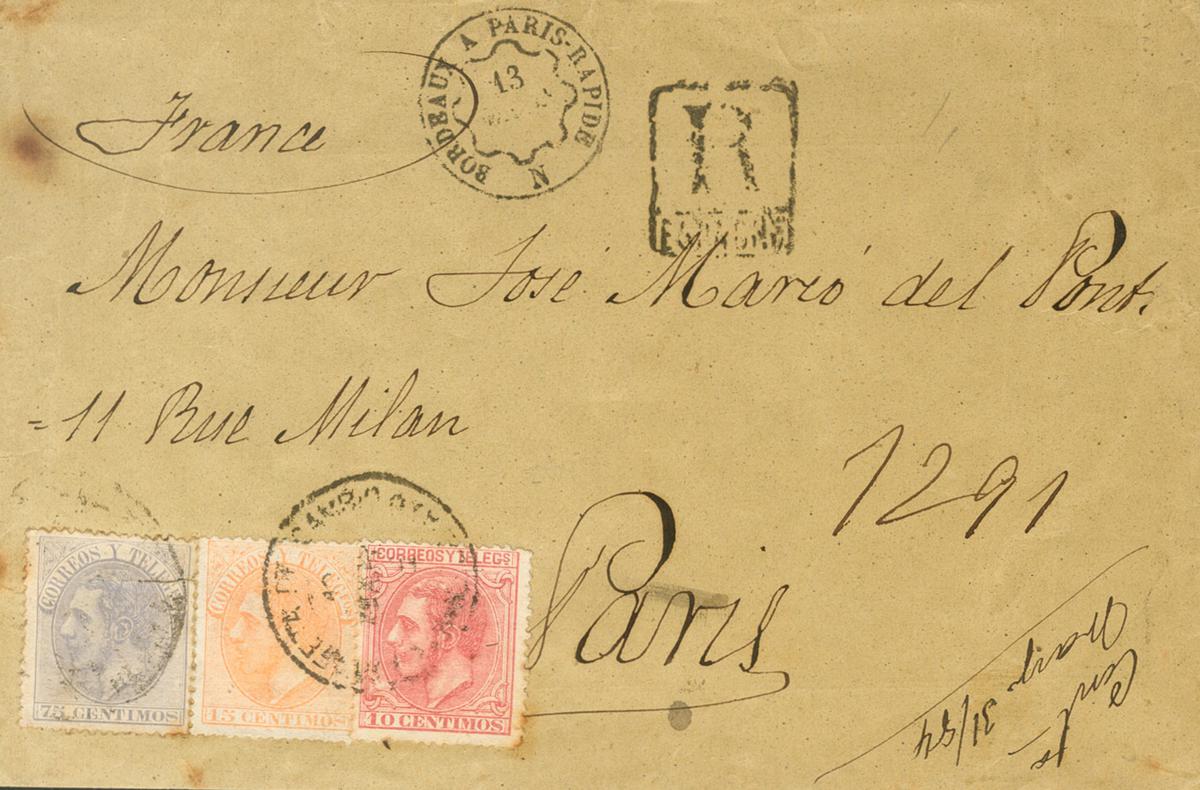 BORDEAUX A PARIS-RAPIDE N
13
R
France
Monsieur José Maria del Pont.
=11 Rue Milan
1291
Paris
CORREOS Y TELEGS
75 CENTIMOS
CORREOS Y TELEGS
15 CENTIMOS
CORREOS Y TELEGS
10 CENTIMOS
31/84